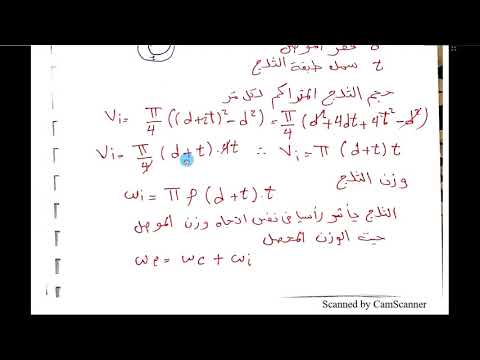 d قطر الموصل
t سمك طبقة الثلج
حجم الثلج المتراكم لكل متر
Vi = π/4 ((d+2t)² - d²) = π/4 (d² + 4dt + 4t² - d²)
Vi = π/4 (d+t).4t ∴ Vi = π (d+t) t
وزن الثلج
ωi = π ρ (d+t).t
الثلج يأثر رأسيا فى نفس اتجاه وزن الموصل
حيث الوزن المحصل
ωe = ωc + ωi
Scanned by CamScanner